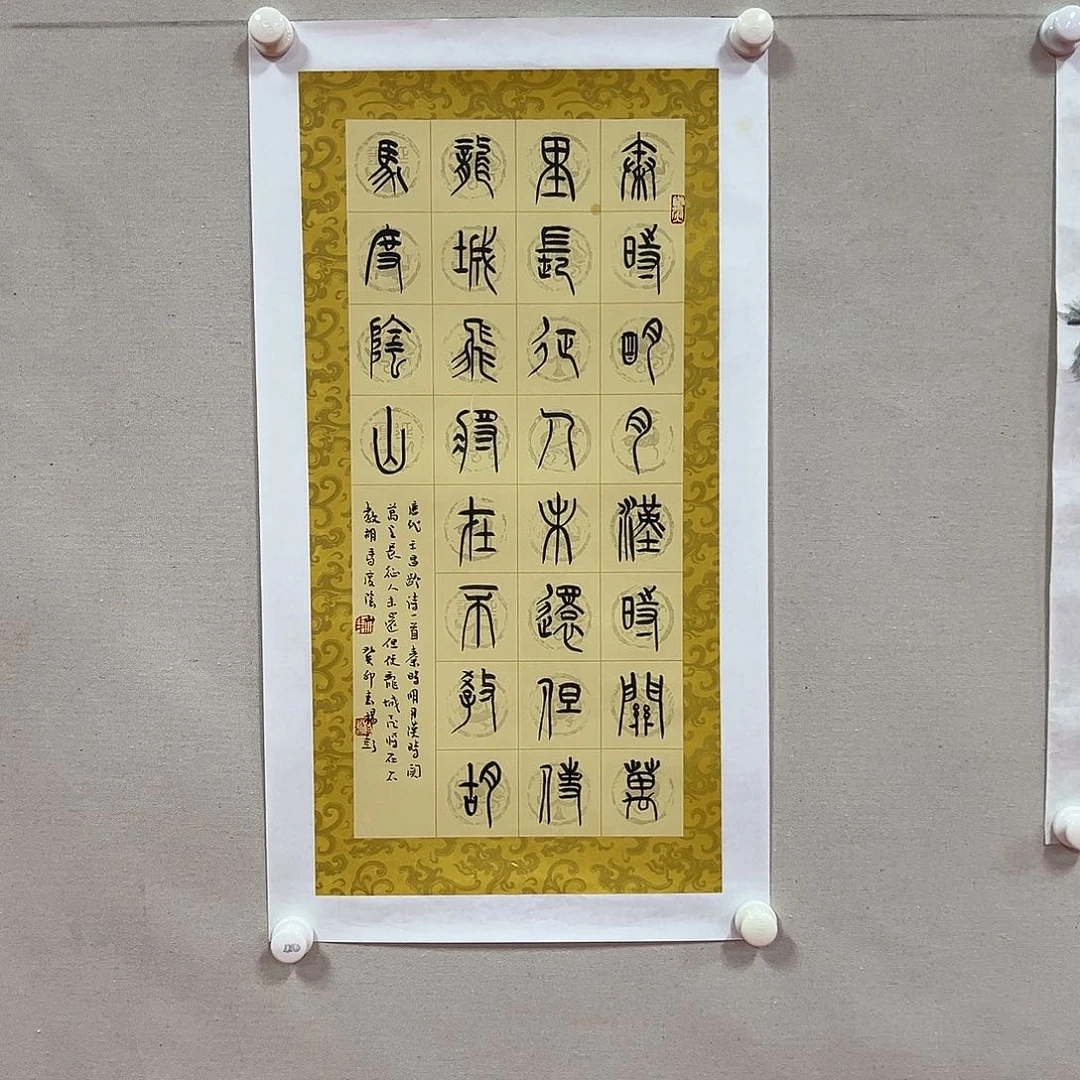 秦時明月漢時關萬
里長征人未還但使
龍城飛將在不教胡
馬度陰山
唐代王昌齡詩一首秦時明月漢時関
萬里長征人未還但使龍城飛將在不
教胡馬度陰山 癸卯春楊彭